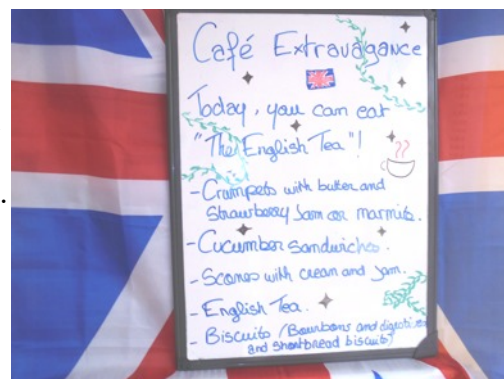 Café Extravagance
Today, you can eat
"The English Tea"!
- Crumpets with butter and
strawberry Jam or marmite.
- Cucumber sandwiches.
- Scones with cream and Jam.
- English Tea.
- Biscuits (Bourbons and digestives
and shortbread biscuits)